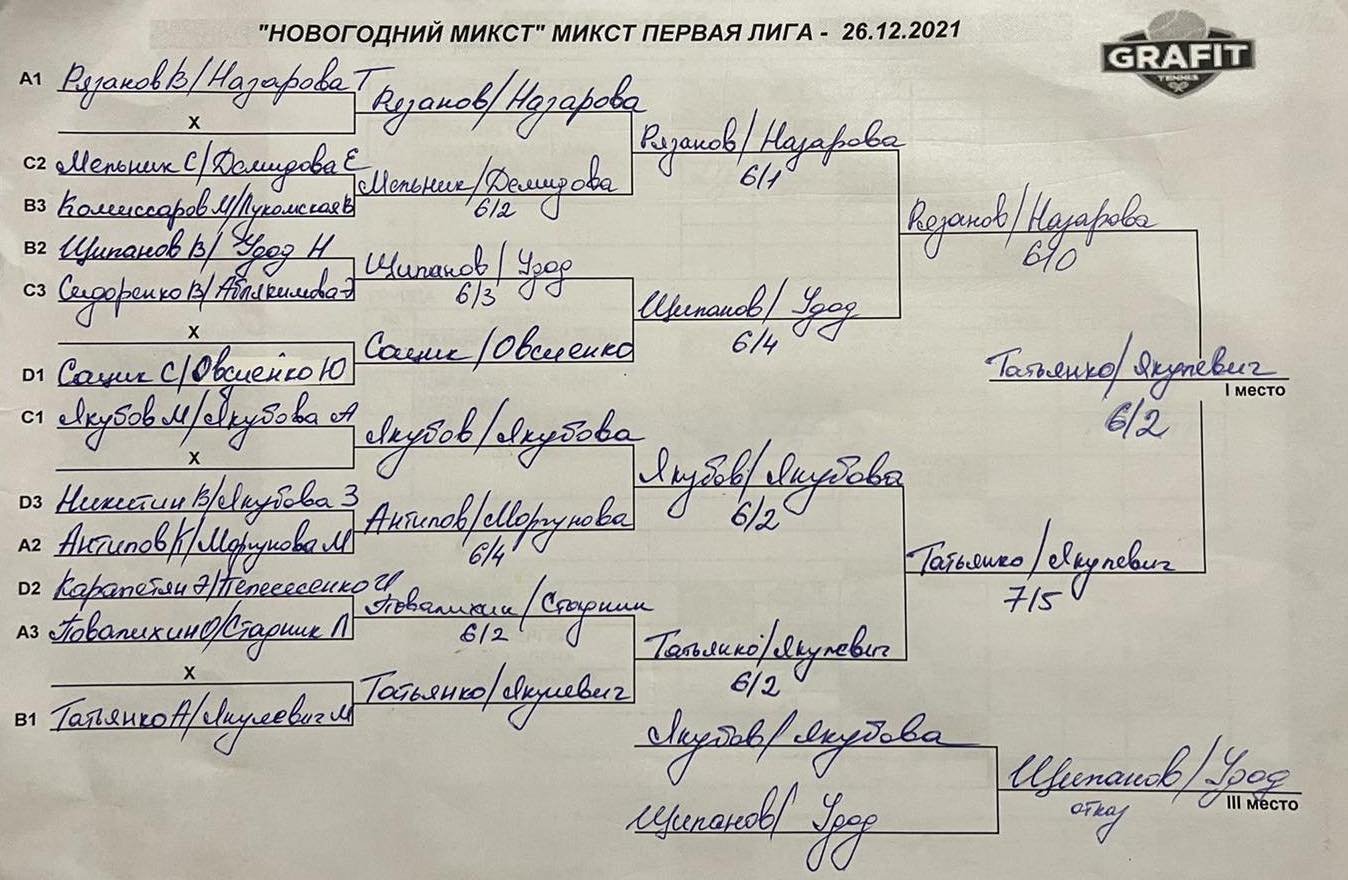 "НОВОГОДНИЙ МИКСТ" МИКСТ ПЕРВАЯ ЛИГА - 26.12.2021
GRAFIT
TENNIS
A1 Рязанов В/Назарова Т
X
C2 Мельник С/Демидова Е
B3 Комиссаров М/Лукомская В
B2 Щипанов В/Удод Н
C3 Сидоренко В/Аблякимова Э
X
D1 Сацик С/Овсиенко Ю
C1 Якубов М/Якубова А
X
D3 Никитин В/Якубова З
A2 Антипов К/Моргунова М
D2 Карапетян Э/
A3 Повалихин О/Стадник Л
X
B1 Татьянко А/Якулевич М
Рязанов/Назарова
Мельник/Демидова
6/2
Щипанов/Удод
6/3
Сацик/Овсиенко
Якубов/Якубова
Антипов/Моргунова
6/4
Повалихин/Стадник
6/2
Татьянко/Якулевич
Рязанов/Назарова
6/1
Щипанов/Удод
6/4
Якубов/Якубова
6/2
Татьянко/Якулевич
6/2
Рязанов/Назарова
6/0
Татьянко/Якулевич
7/5
Татьянко/Якулевич
I место
6/2
Якубов/Якубова
Щипанов/Удод
Щипанов/Удод
III место
отказ